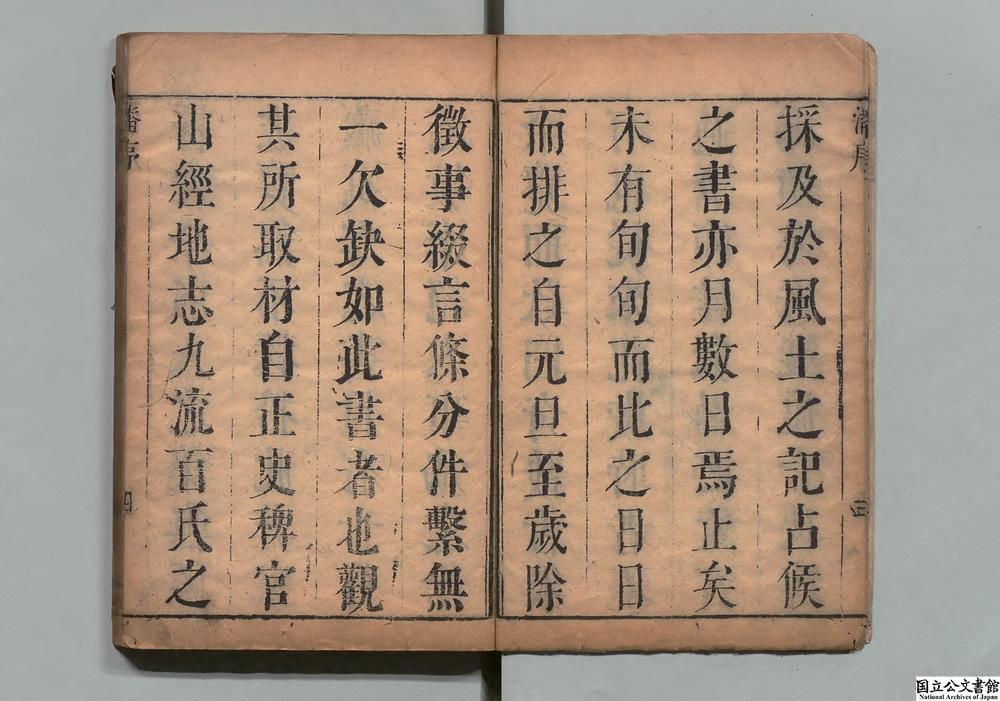 採及於風土之記占候
之書亦月數日焉止矣
未有旬旬而比之日日
而排之自元旦至歲除
三
徵事綴言條分件繫無
一欠缺如此書者也觀
其所取材自正史稗官
山經地志九流百氏之
潘序
四
国立公文書館
National Archives of Japan